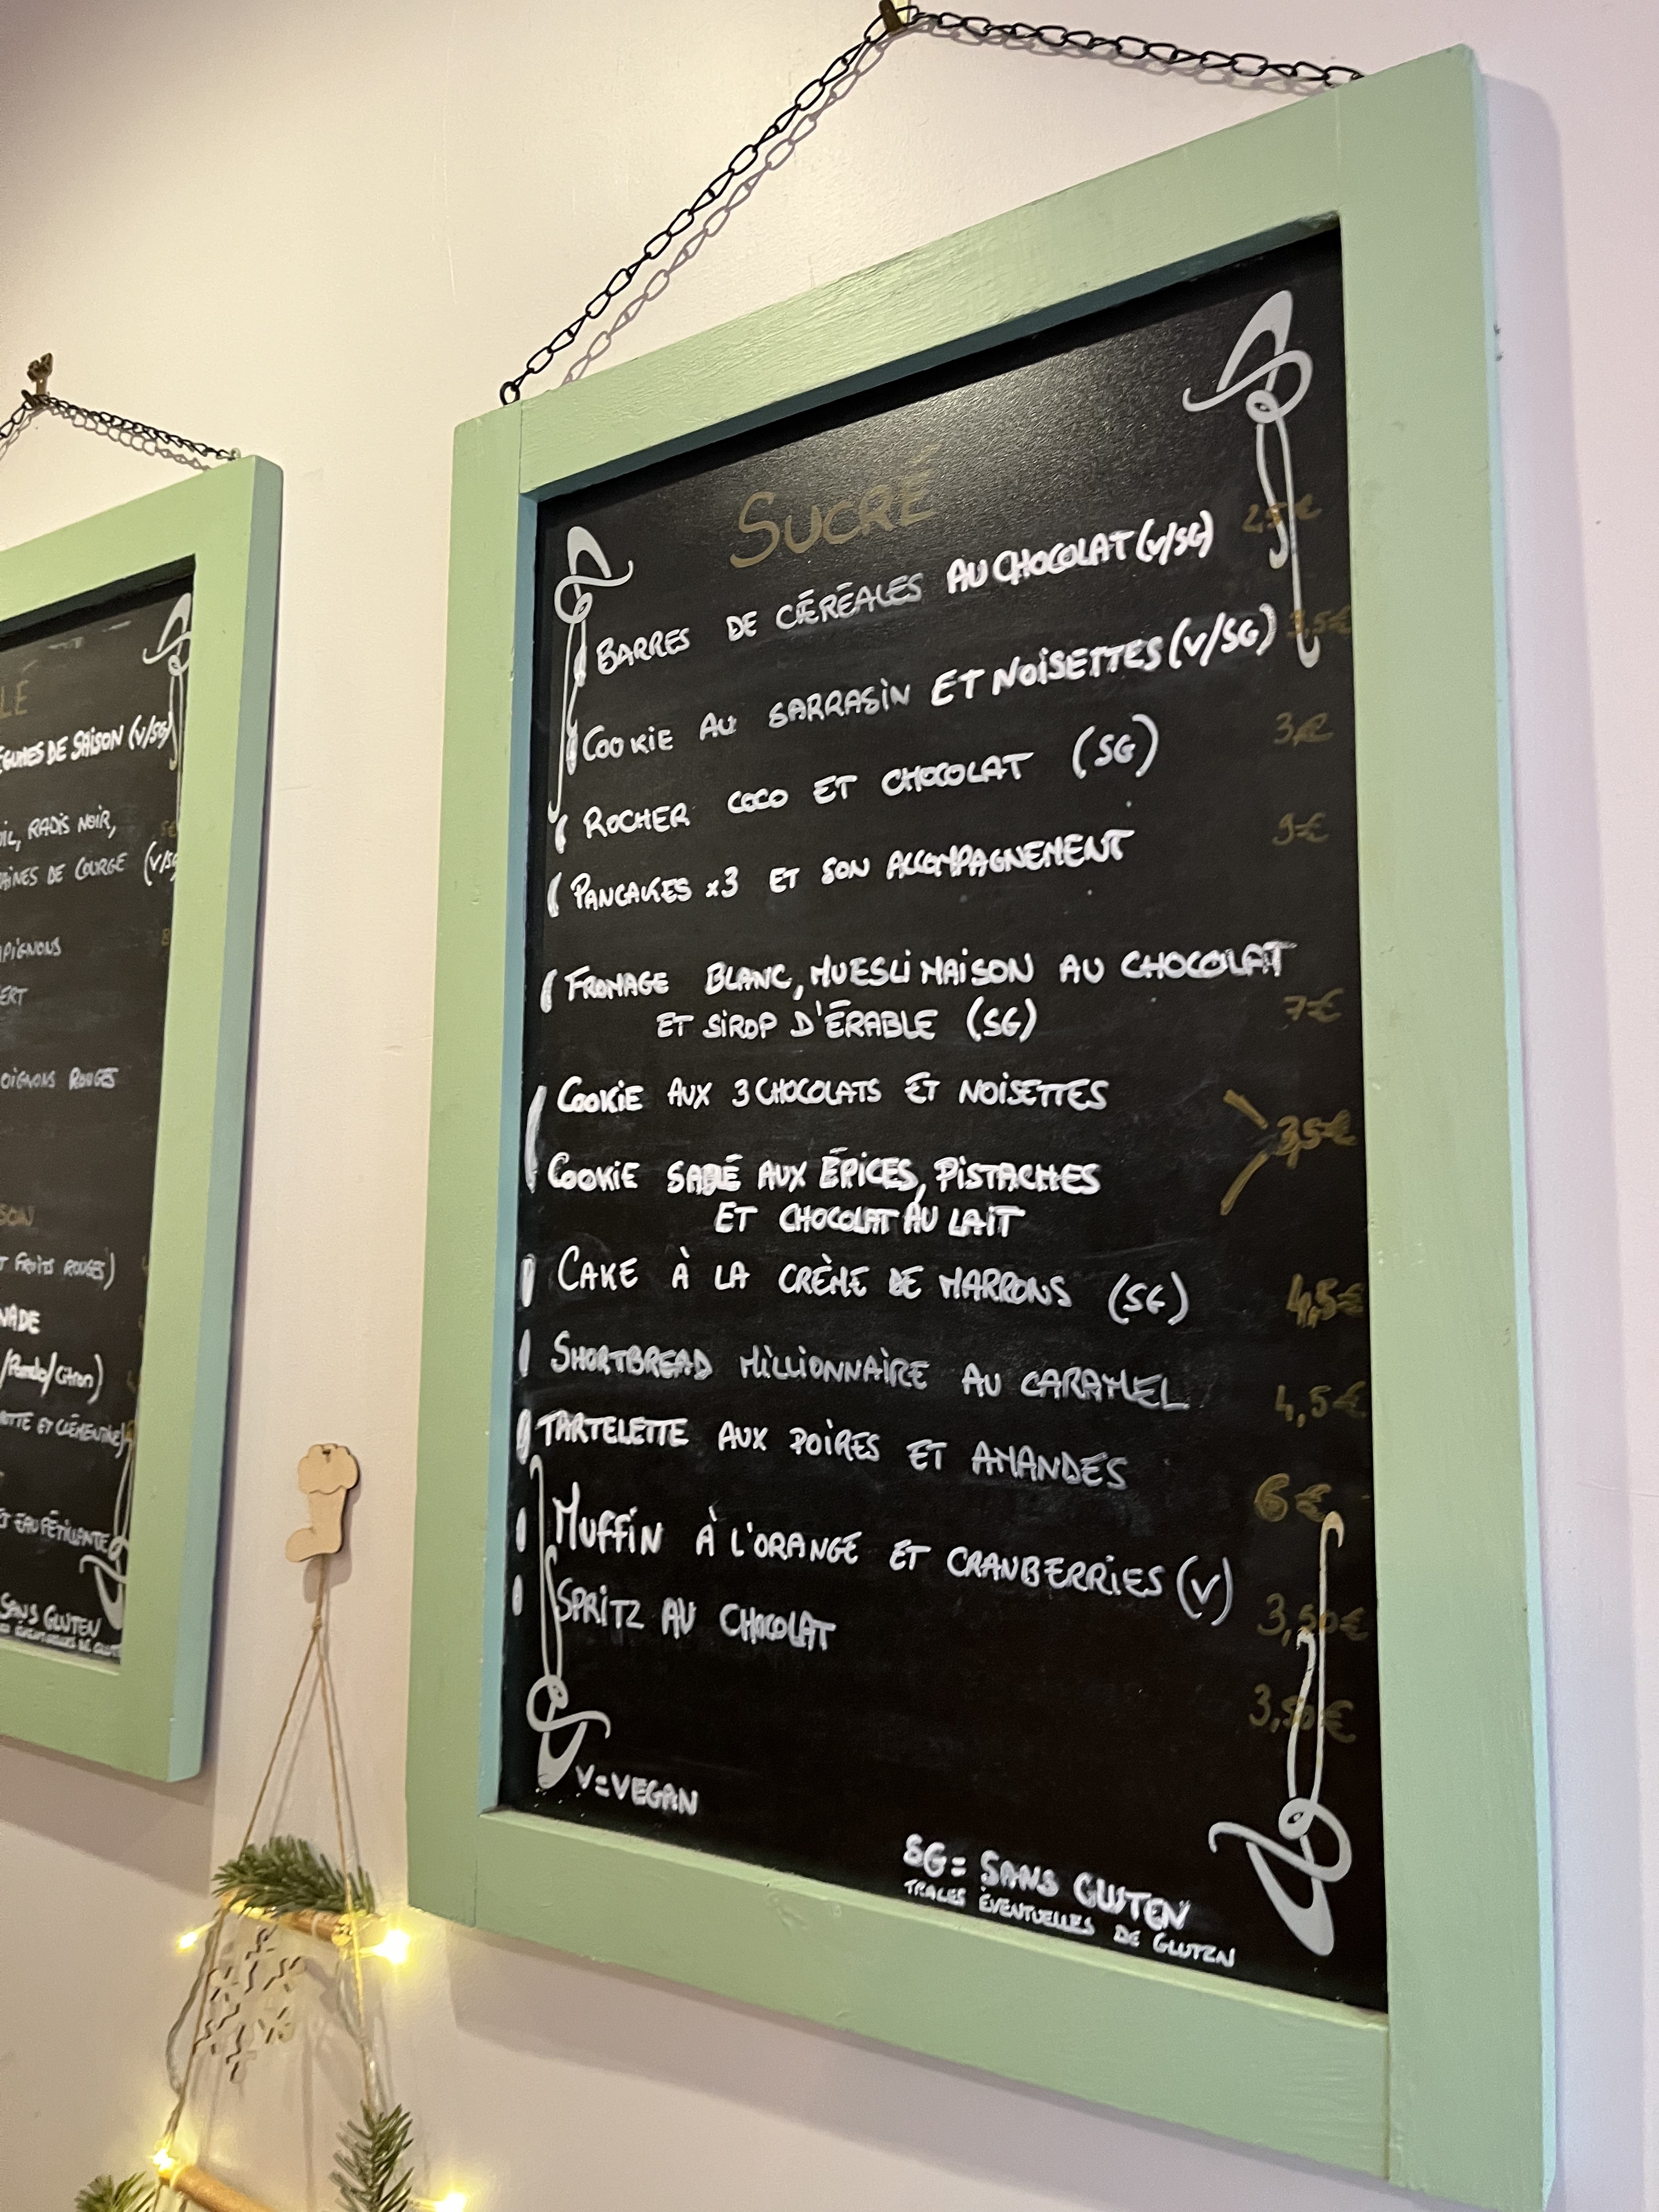 LÉ
ÉGUMES DE SAISON (V/SG)
RADIS NOIR,
AINES DE COURGE (V/SG
PIGNONS
ERT
OIGNONS ROUGES
SON
T FRUITS ROUGES)
NADE
/Pomelo/Citron)
OTTE ET CLÉMENTINE)
ET EAU PÉTILLANTE
SANS GLUTEN
ÉVENTUELLES DE
SUCRÉ
BARRES DE CÉRÉALES AU CHOCOLAT (V/SG) 2,5€
COOKIE AU SARRASIN ET NOISETTES (V/SG) 3,5€
ROCHER COCO ET CHOCOLAT (SG) 3€
PANCAKES x3 ET SON ACCOMPAGNEMENT 9€
FROMAGE BLANC, MUESLI MAISON AU CHOCOLAT
ET SIROP D'ÉRABLE (SG) 7€
COOKIE AUX 3 CHOCOLATS ET NOISETTES
3,5€
COOKIE SABLÉ AUX ÉPICES, PISTACHES
ET CHOCOLAT AU LAIT
CAKE À LA CRÈME DE MARRONS (SG) 4,5€
SHORTBREAD MILLIONNAIRE AU CARAMEL 4,5€
TARTELETTE AUX POIRES ET AMANDES 6€
MUFFIN À L'ORANGE ET CRANBERRIES (V) 3,50€
SPRITZ AU CHOCOLAT 3,50€
V=VEGAN
SG= SANS GLUTEN
TRACES ÉVENTUELLES DE GLUTEN